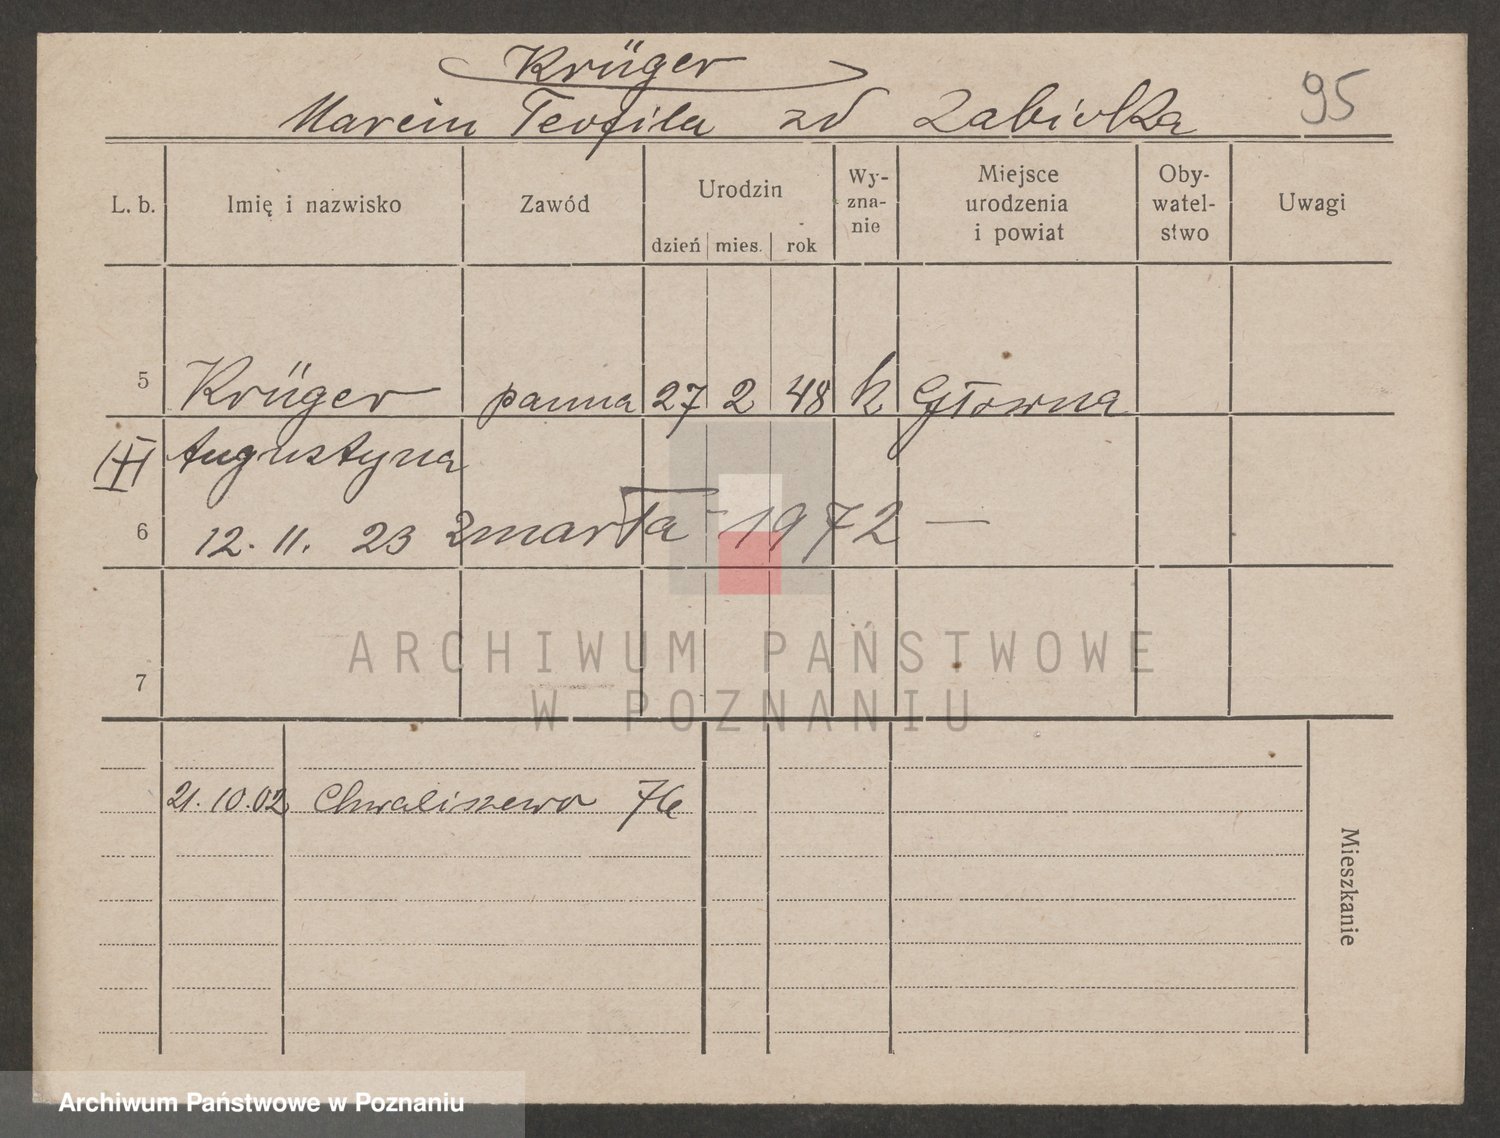 Krüger
Marcin Teofila zd Zabiolka
95
L. b. Imię i nazwisko Zawód Urodzin dzień mies. rok Wy-zna-nie Miejsce urodzenia i powiat Oby-watel-stwo Uwagi
5 Krüger panna 27 2 48 k Główna
Augustyna
6 12. 11. 23 zmarła 1972 —
7
21. 10. 02 Chwaliszewo 76
Mieszkanie
ARCHIWUM PAŃSTWOWE
W POZNANIU
Archiwum Państwowe w Poznaniu